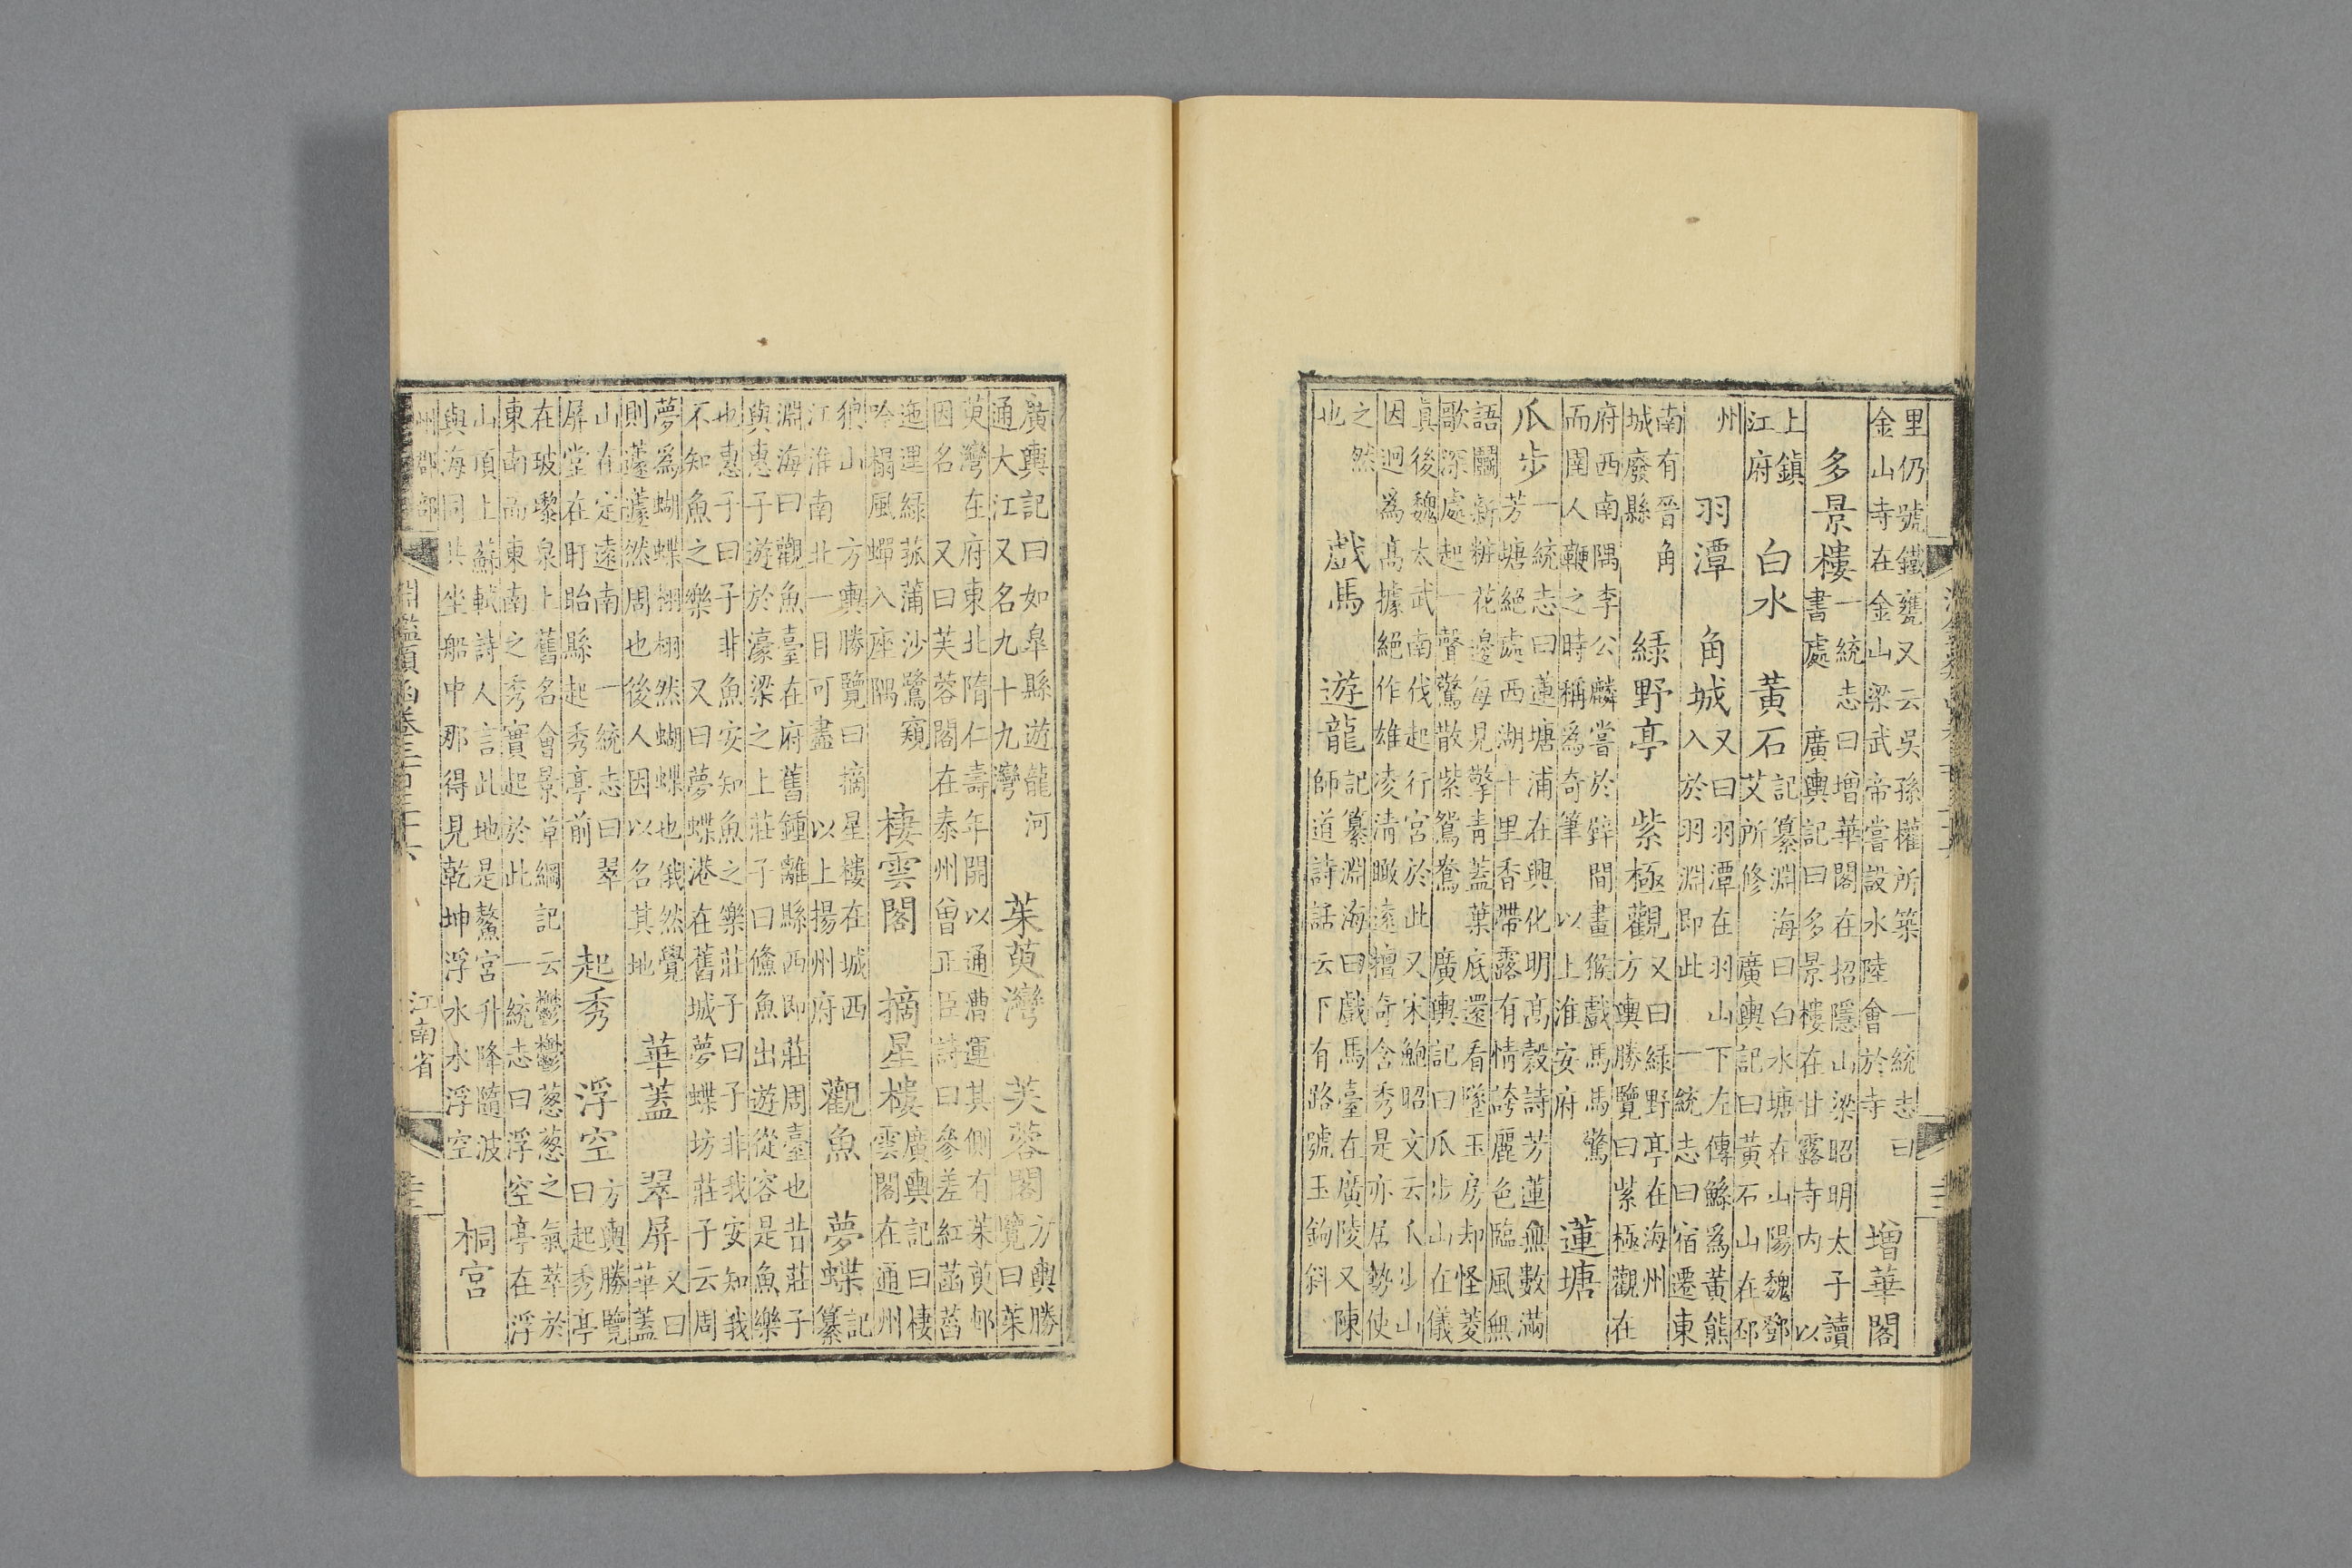 里仍號鐵甕又云吳孫權所築 一統志曰
金山寺在金山梁武帝嘗設水陸會於寺
增華閣
多景樓
一統志曰增華閣在招隱山梁昭明太子讀
書處 廣輿記曰多景樓在甘露寺内 以
上鎮
江府
白水 黃石
記纂淵海曰白水塘在山陽魏鄧
艾所修 廣輿記曰黃石山在邳
州
羽潭 角城
又曰羽潭在羽山下左傳鯀爲黃熊
入於羽淵即此 一統志曰宿遷東
南有晉角
城廢縣
綠野亭 紫極觀
又曰綠野亭在海州
方輿勝覽曰紫極觀在
府西南隅李公麟嘗於壁間畫猴戲馬馬驚
而圉人鞭之時稱爲奇筆 以上淮安府
蓮塘
瓜步
一統志曰蓮塘浦在興化明高穀詩芳蓮無數滿
芳塘絕處西湖十里香帶露有情誇麗色臨風無
語鬭新粧花邊每見擎青蓋葉底還看墜玉房却怪菱
歌深處起一聲驚散紫鴛鴦 廣輿記曰瓜步山在儀
真後魏太武南伐起行宮於此又宋鮑昭文云瓜步山
因迥爲高據絕作雄凌清瞰遠擅奇含秀是亦居勢使
之然
也
戲馬 遊龍
記纂淵海曰戲馬臺在廣陵又陳
師道詩話云下有路號玉鉤斜
廣輿記曰如臯縣遊龍河
通大江又名九十九灣
茱萸灣 芙蓉閣
方輿勝
覽曰茱
萸灣在府東北隋仁壽年開以通漕運其側有茱萸邨
因名 又曰芙蓉閣在泰州曾正臣詩曰參差紅菡萏
迤邐綠菰蒲沙鷺窺
吟榻風蟬入座隅
棲雲閣 摘星樓
廣輿記曰棲
雲閣在通州
狼山 方輿勝覽曰摘星樓在城西
江淮南北一目可盡 以上揚州府
觀魚 夢蝶
記
纂
淵海曰觀魚臺在府舊鍾離縣西即莊周臺也昔莊子
與惠子遊於濠梁之上莊子曰鯈魚出遊從容是魚樂
也惠子曰子非魚安知魚之樂莊子曰子非我安知我
不知魚之樂 又曰夢蝶港在舊城夢蝶坊莊子云周
夢爲蝴蝶栩栩然蝴蝶也俄然覺
則蘧蘧然周也後人因以名其地
華蓋 翠屏
又曰
華蓋
山在定遠南 一統志曰翠
屏堂在盱眙縣起秀亭前
起秀 浮空
方輿勝覽
曰起秀亭
在玻瓈泉上舊名會景章綱記云鬱鬱葱葱之氣萃於
東南而東南之秀實起於此 一統志曰浮空亭在浮
山頂上蘇軾詩人言此地是鰲宮升降隨波
與海同共坐船中那得見乾坤浮水水浮空
桐宮
州郡部 淵鑑類函卷三百三十六 江南省